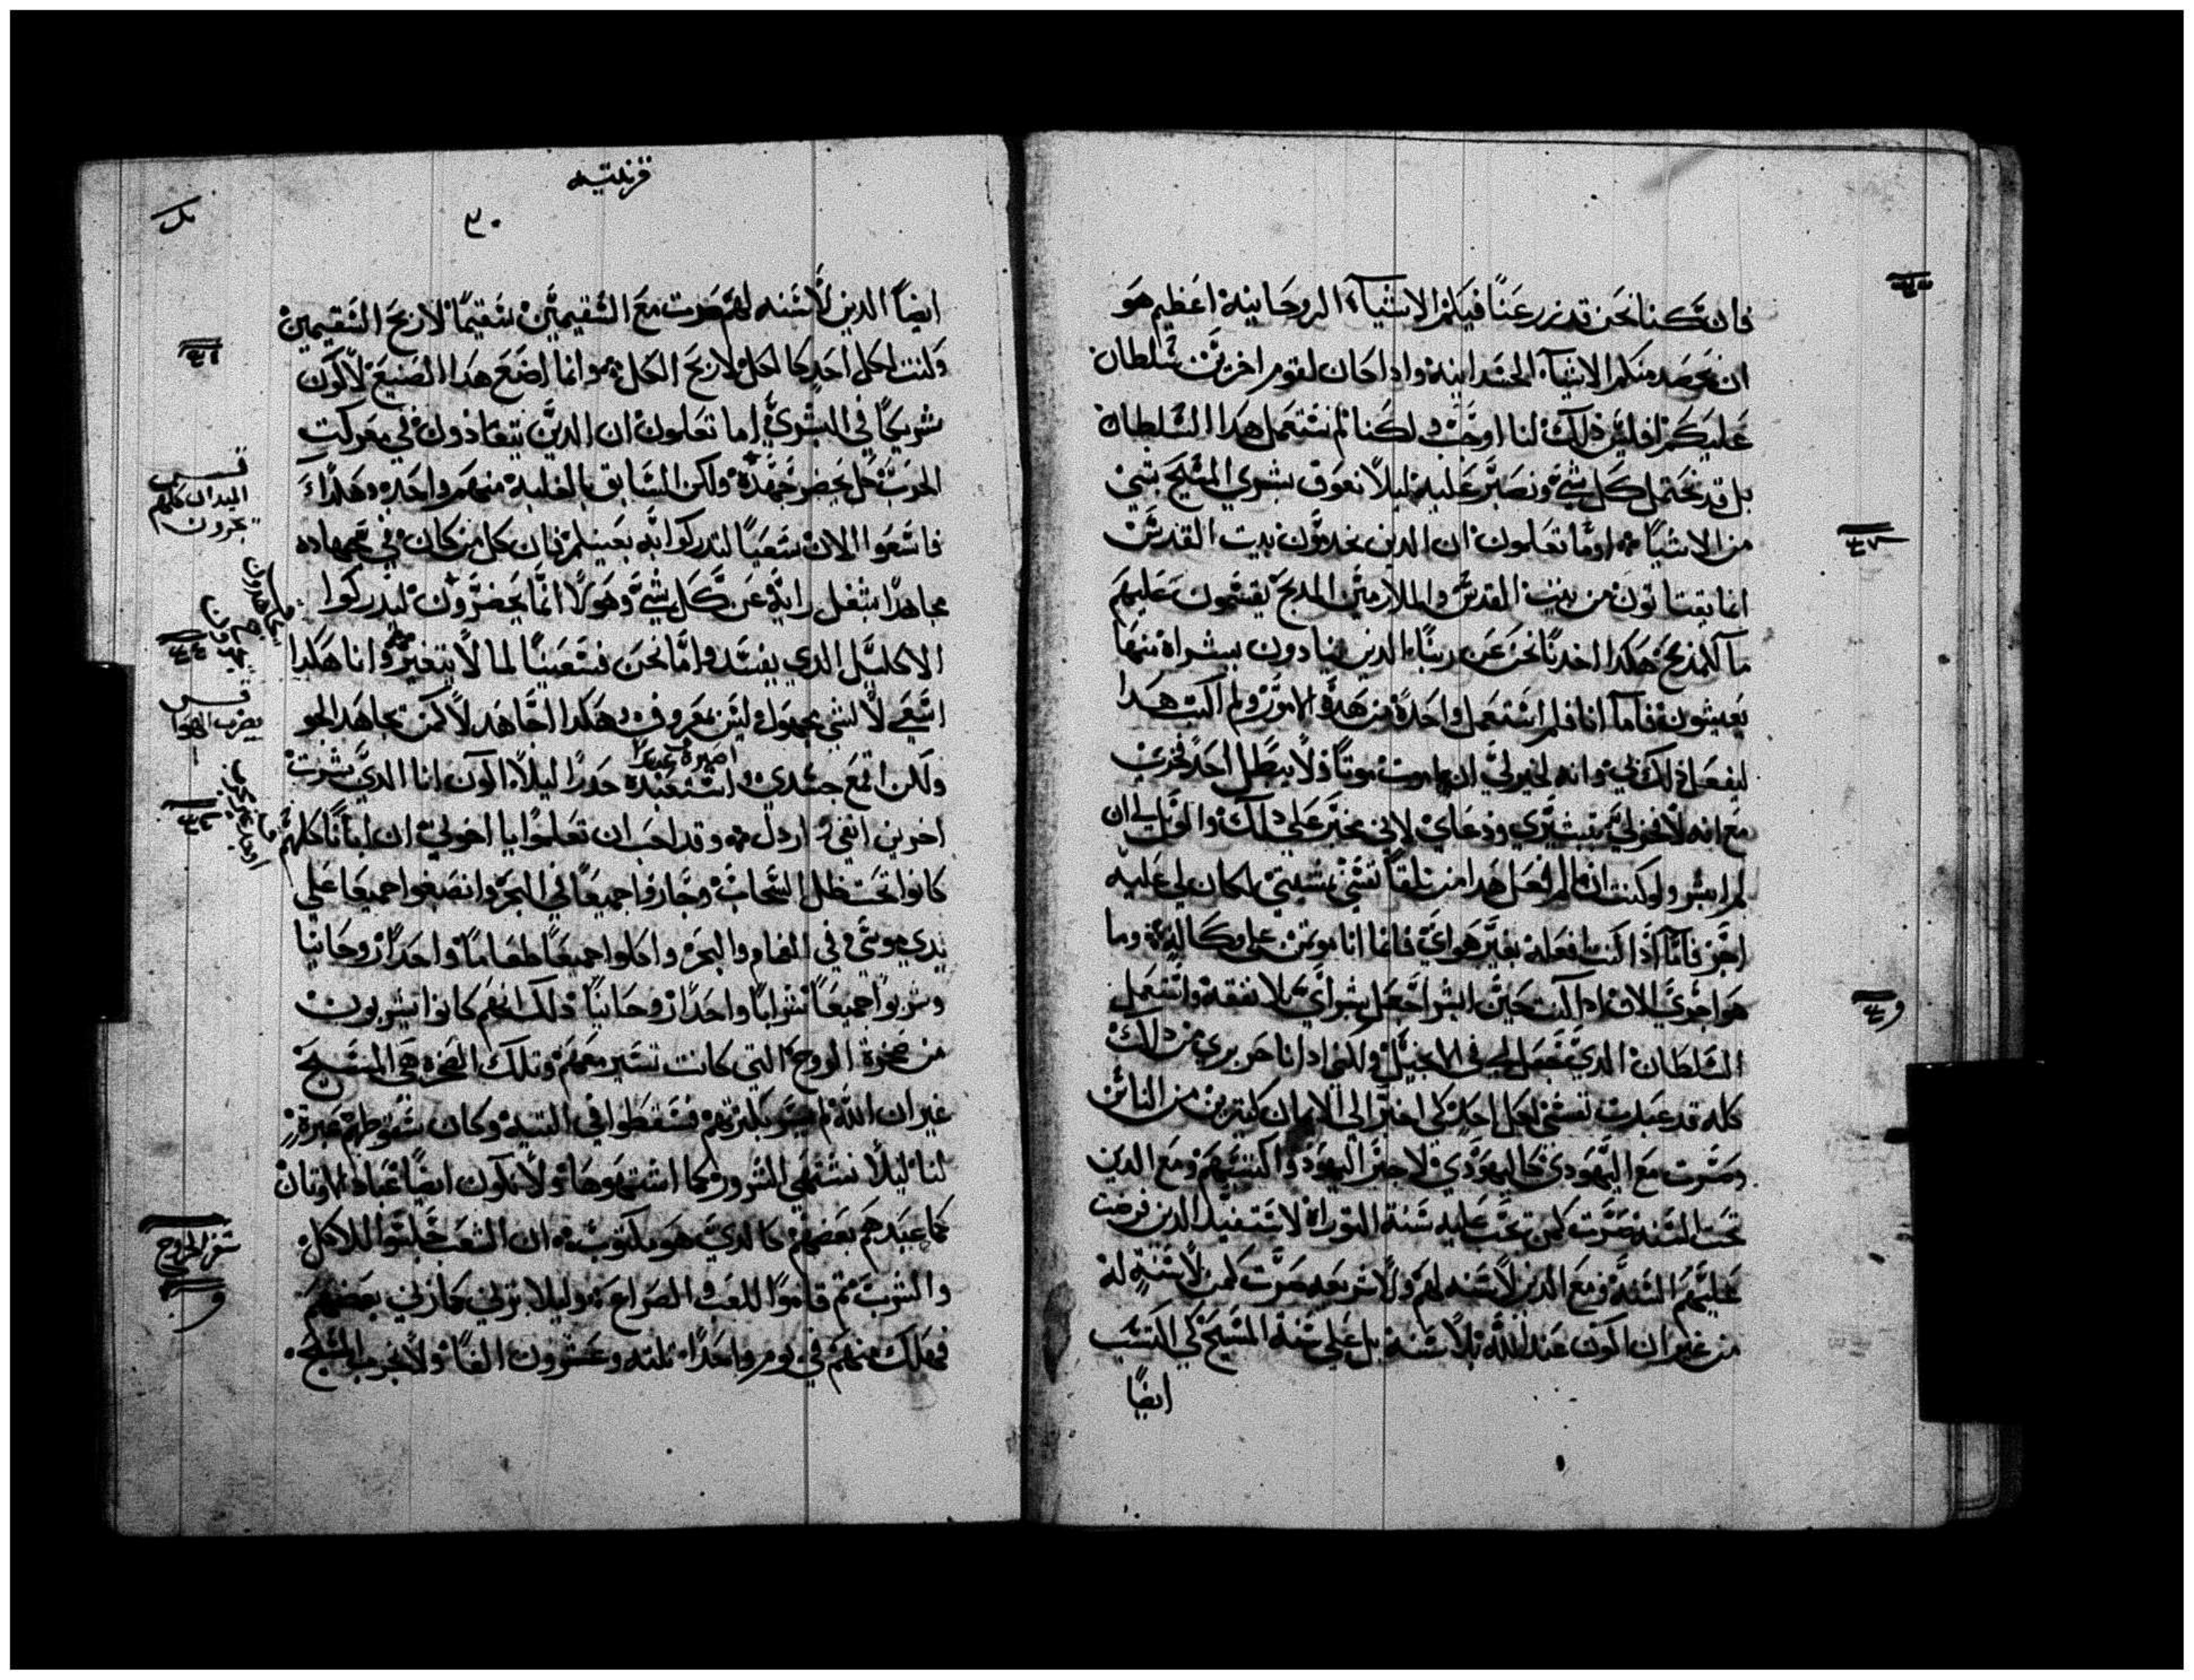 فان كنا نحن قد زرعنا فيكم الاشياء الروحانية اعظيم هو
ان نحصد منكم الاشياء الجسدانية واذا كان لقوم اخرين سلطان
عليكم افليس ذلك لنا اوجب لكنا لم نستعمل هذا السلطان
بل قد نحتمل كل شي ونصبر عليه ليلا نعوق بشري المسيح بشي
من الاشيا اوما تعلمون ان الدين يخدمون بيت القدس
انما يقتاتون من بيت المقدس والملازمين المدبح يقتسمون عليهم
ما للمذبح هكدا اخدنا نحن عن ربنا الدين ينادون ببشراه منها
يعيشون فاما انا فلم استعمل واحدة من هده الامور ولم اكتب هدا
ليفعل ذلك بي وانه لخير لي ان اموت موتا ولا يبطل احد فخري
مع انه لا فخر لي بتبشيري ودعاي لاني مجبر علي دلك والويل لي ان
لم ابشر ولو كنت انما افعل هدا من تلقا نفسي بمشيتي لكان لي عليه
اجر فاما اذا كنت افعله بغير هواي فانما انا موتمن علي وكالة وما
هو اجري الان اذا كنت حين ابشر اجعل بشراي بلا نفقة واستعمل
السلطان الدي جعل لي في الانجيل ولكني اد انا حر بري من دلك
كله قد عبدت نفسي لكل احد كي اجتر الي الايمان كثيرين من الناس
وصرت مع اليهودي كاليهودي لاجتر اليهود واكتسبهم ومع الدين
تحت السنه صرت كمن تجب عليه سنة التوراة لاستفيد الدين فرضت
عليهم السنة ومع الدين لا سنه لهم ولا شريعه صرت كمن لا سنة له
من غير ان اكون عند الله بلا سنة بل علي سنة المسيح كي اكتسب
ايضا
قرنتيه
٣٠
ايضا الدين لا سنه لهم صرت مع السقيمين سقيما لاربح السقيمين
وكنت لكل احد كالكل لاربح الكل وانما اصنع هدا الصنيع لاكون
شريكا في البشري اما تعلمون ان الدين يتعادون في معركت
الحرب كل يحضر جهده ولكن السابق بالغلبة منهم واحد وهكدا
فاسعوا الان سعيا لتدركوا به بعينكم فان كل من كان في جهاده
مجاهدا يشغل رايه عن كل شي وهولا انما يحضرون ليدركوا
الاكليل الدي يفسد واما نحن فسعينا لما لا يتغير وانا هكدا
اسعي لا لشي مجهول ليس بمعروف وهكدا اجاهد لا كمن يجاهد الجو
اصيره عبدا
ولكن اقمع جسدي واستعبده حدرا ليلا اكون انا الدي بشرت
اخرين انفي اردل وقد احب ان تعلموا يا اخوتي ان ابانا كلهم
كانوا تحت ظل السحاب وجازوا جميعا في البحر وانصبغوا جميعا علي
يدي موسي في الغمام والبحر واكلوا جميعا طعاما واحدا روحانيا
وشربوا جميعا شرابا واحدا روحانيا ذلك انهم كانوا يشربون
من صخرة الروح التي كانت تسير معهم وتلك الصخره هي المسيح
غير ان الله لم يسر بكثرتهم فسقطوا في التيه وكان سقوطهم عبرة
لنا ليلا نشتهي الشرور كما اشتهوها ولا نكون ايضا عباد الاوتان
كما عبدهم بعضهم كالدي هو مكتوب ان الشعب جلسوا للاكل
والشرب ثم قاموا للعب والصراع وليلا نزني كما زني بعضهم
فهلك منهم في يوم واحدا تلته وعشرون الفا ولا نجرب المسيح
الميدان كلهم
يجرون
يضرب الهوا
سفر الخروج